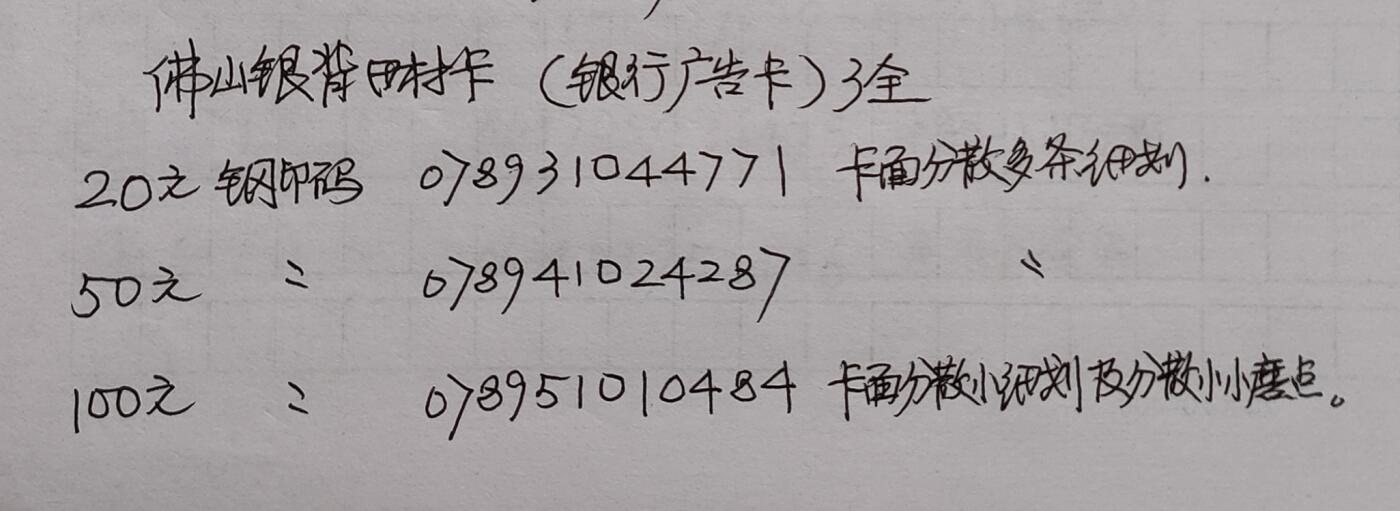 佛山银背田村卡（银行广告卡）3全
20元 钢印码 078931044771 卡面分散多条细划.
50元 〃 078941024287 〃
100元 〃 078951010484 卡面分散小细划及分散小小磨点。